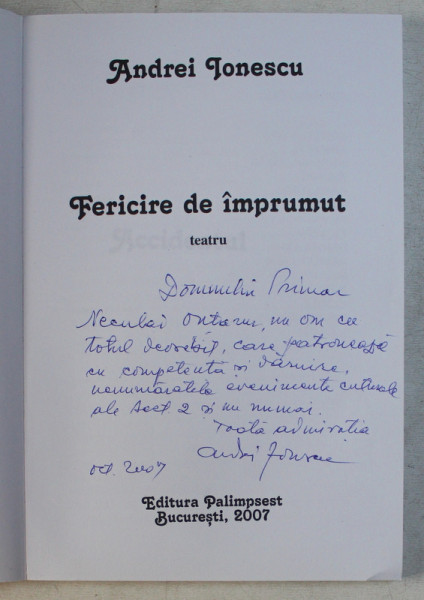 Andrei Ionescu
Fericire de împrumut
teatru
Domnului Primar
Neculai Onțanu, un om cu
totul deosebit, care patronează
cu competență și dăruire,
nenumăratele evenimente culturale
ale Sect 2 și nu numai.
Toată admirația
Andrei Ionescu
oct. 2007
Editura Palimpsest
București, 2007